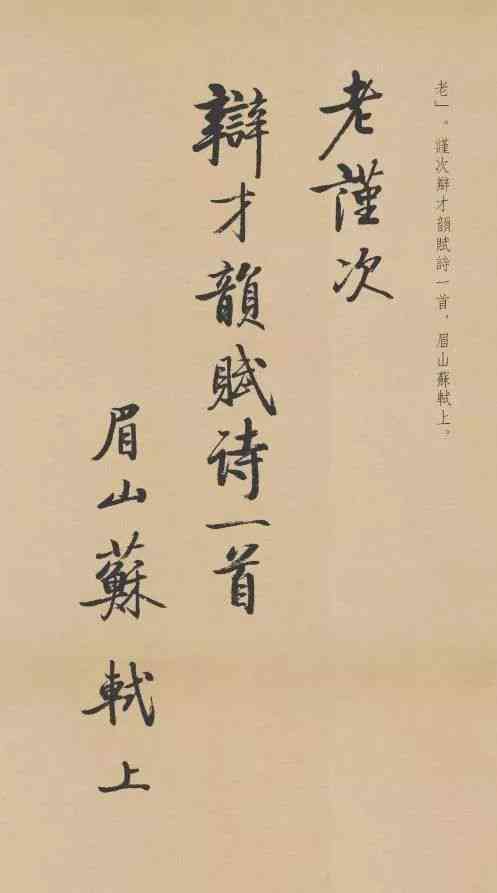 老」。謹次辯才韻賦詩一首，眉山蘇軾上。
老謹次
辯才韻賦詩一首
眉山蘇軾上